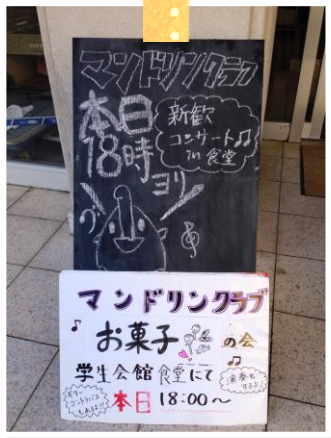 マンドリンクラブ
本日
18時
ヨリ
新歓
コンサート♫
in 食堂
マンドリンクラブ
お菓子の会
学生会館食堂にて
本日 18:00〜
ギター
コントラバス
もあるよ!!
演奏も
するよ!